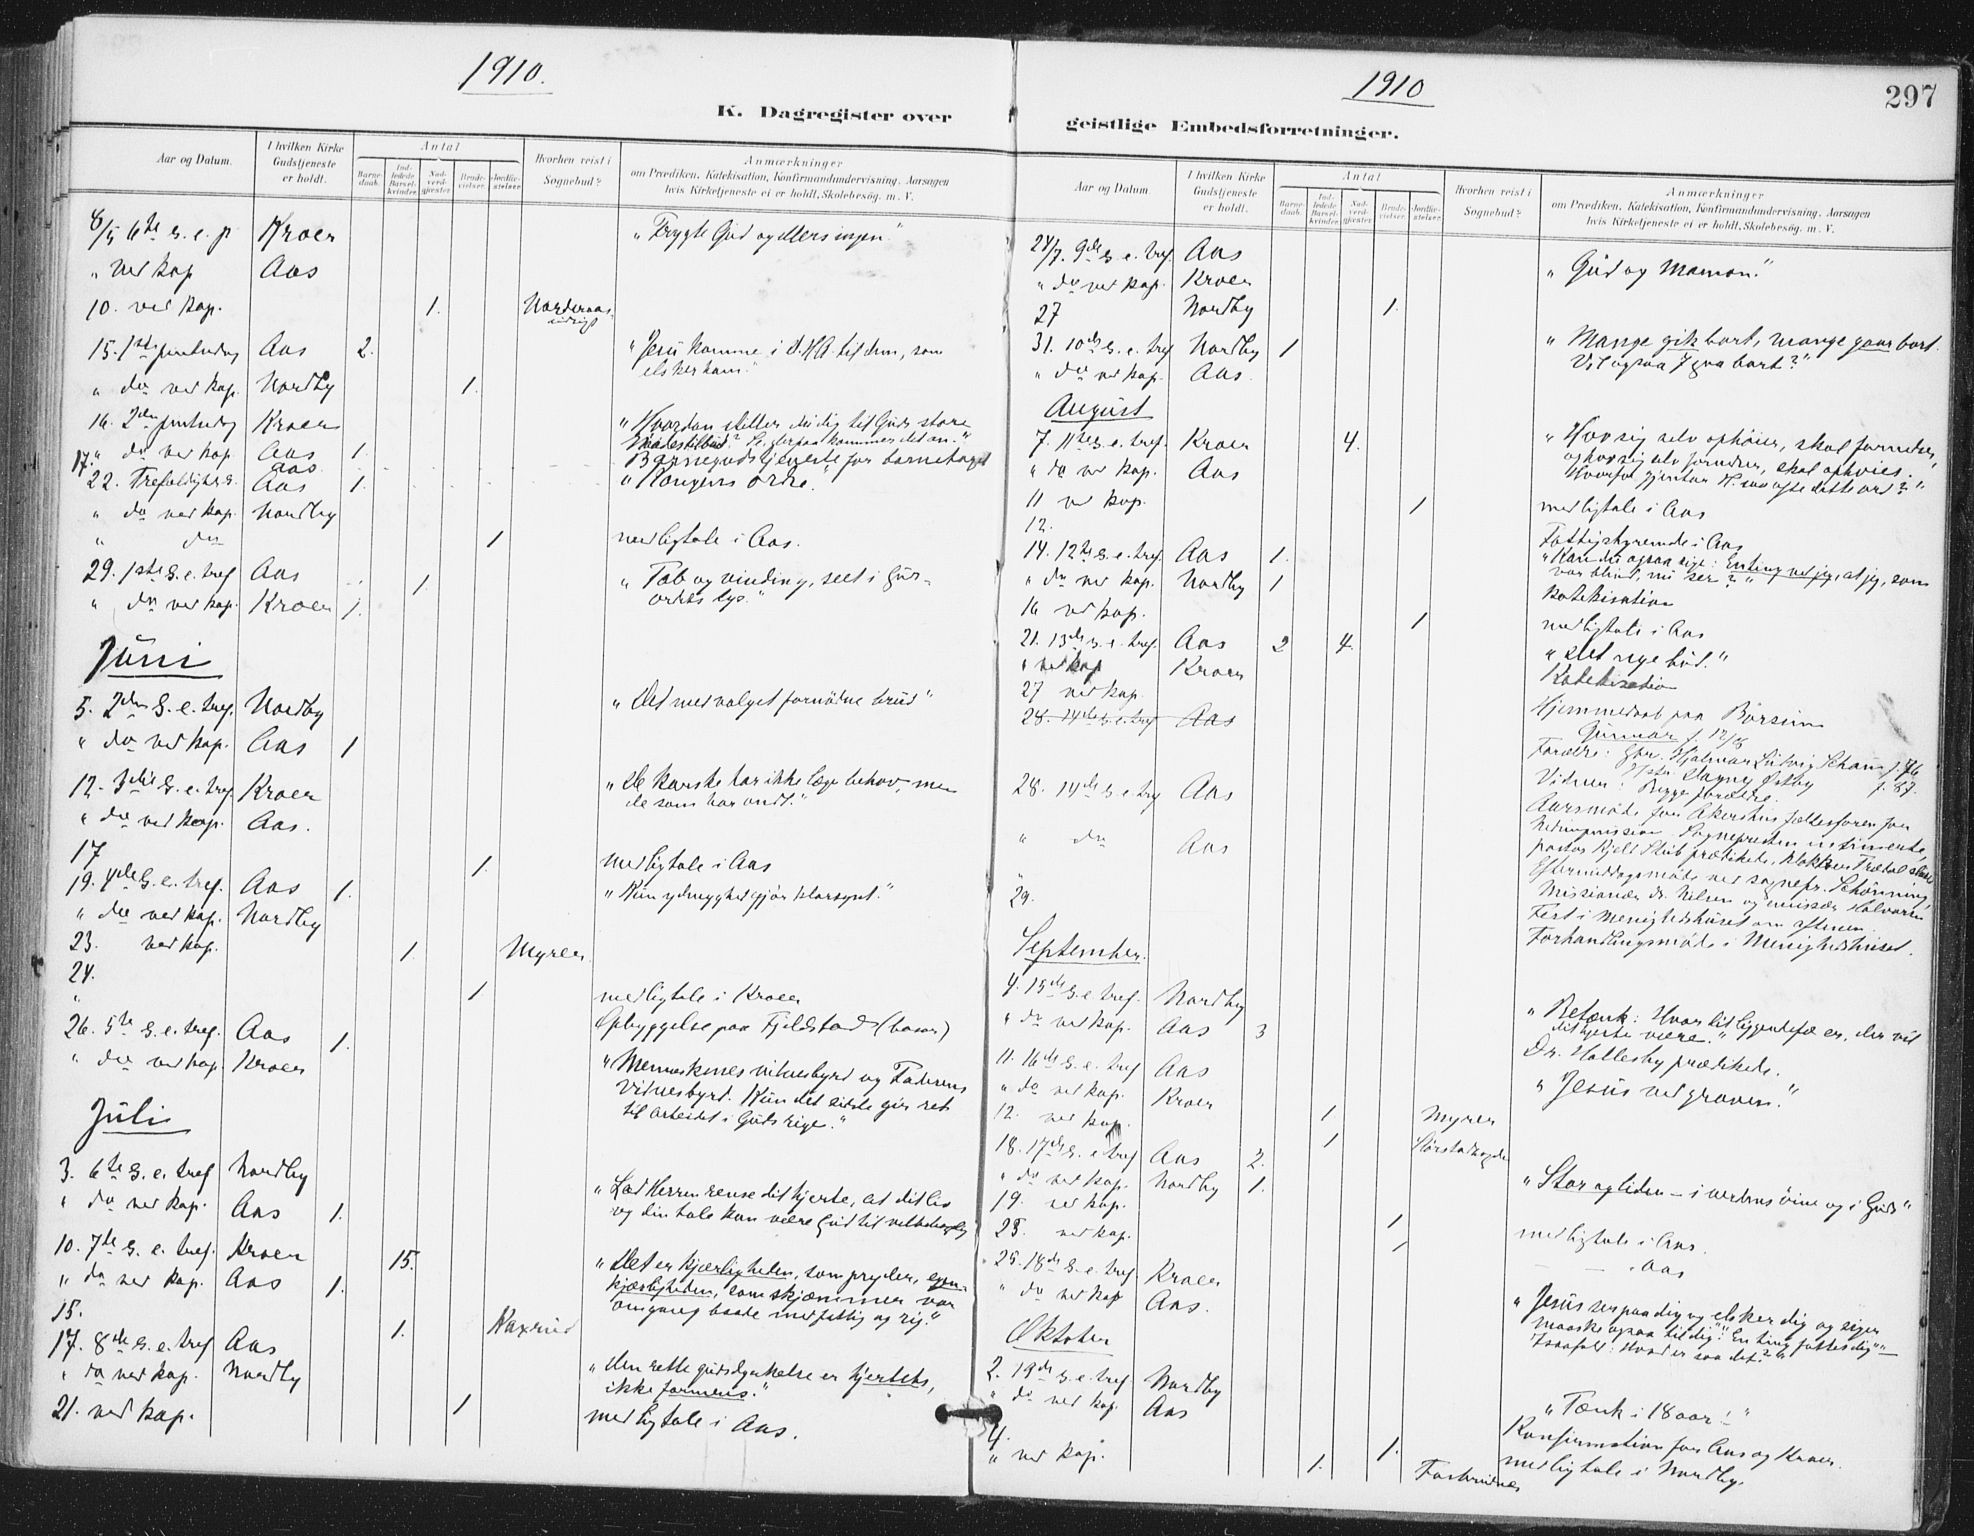 1910.
K. Dagregister over
Aar og Datum.
I hvilken Kirke Gudstjeneste er holdt.
Antal
Barnedaab.
Indledede Barselkvinder.
Nadverdgjæster
Brudevielser.
Jordfæstelser
Hvorhen reist i Sognebud?
Anmærkninger
om Prædiken. Katekisation, Konfirmandundervisning. Aarsagen
hvis Kirketjeneste ei er holdt, Skolebesøg. m. V.
8/5 6te S. e. p Kroer "Frygte Gud og ellers ingen."
" ved kap Aas
10. ved kap. 1. Norderaas
15. 1ste pintsedag Aas 2. "Jesu komme i d. H. A. til dem, som
elsker ham."
" do ved kap. Nordby 1.
16. 2den pintsedag Kroer "Hvordan stiller du dig til Guds store
" do ved kap. Aas 1. Naadestilbud?
17. Aas Barnegudstjeneste for barnetoget
22. Trefoldigheds. Aas 1. "Kongens ordre."
" do ved kap. Nordby
" do 1 med ligtale i Aas.
29. 1ste S. e. tref Aas 1. "Tab og vinding, seet i Guds
ordets lys."
" do ved kap. Kroer 1.
Juni
5. 2den S. e. tref. Nordby "Det med valget fornødne brud"
" do ved kap. Aas 1
12. 3die S. e. tref Kroer "De karske har ikke læge behov, men
de som har ondt."
" do ved kap. Aas.
17 1. med ligtale i Aas
19. 4de S. e. tref. Aas 1. "Kun ydmyghed gjør klarsynt."
" do ved kap. Nordby
23. ved kap. 1 Myrer.
24.
" 1 med ligtale i Kroer
26. 5te S. e. tref. Aas 1. Opbyggelse paa Fjeldstad (basar)
" do ved kap. Kroer "Menneskenes vitnesbyrd og Faderens
vitnesbyrd. Kun det sidste gir ret
til arbeidet i Guds rige."
Juli
3. 6te S. e. tref Nordby
" do ved kap. Aas 1. "Lad Herren rense dit hjerte, at dit liv
og din tale kan være Gud til velbehag
10. 7de S. e. tref. Kroer 15. "Det er kjærligheden, som pryder, egen-
" do ved kap. Aas 1. kjærligheden, som skjæmmer vor
omgang baade med fattig og rig."
15. 1. Kaxrud
17. 8de S. e. tref Aas
" do ved kap. Nordby "den rette gudsdyrkelse er hjertets,
ikke formens."
21. ved kap. 1 med ligtale i Aas.
1910
297
geistlige Embedsforretninger.
Aar og Datum
I hvilken Kirke Gudstjeneste er holdt.
Antal
Barnedaab.
Indledede Barselkvinder.
Nadverdgjæster
Brudevielser.
Jordfæstelser.
Hvorhen reist i Sognebud?
Anmærkninger
om Prædiken. Katekisation, Konfirmandundervisning. Aarsagen
hvis Kirketjeneste ei er holdt, Skolebesøg. m. V.
24/7. 9de S. e. tref Aas "Gud og Mamon."
" do ved kap. Kroer
27 Nordby 1.
31. 10de S. e. tref Nordby 1 "Mange gik bort, mange gaar bort.
Vil ogsaa I gaa bort?"
" do ved kap. Aas.
August
7. 11te S. e. tref. Kroer 4. "Hvo sig selv ophøier, skal fornedres,
og hvo sig selv fornedrer, skal ophøies.
" do ved kap. Aas Hvorfor gjentar H. saa ofte dette ord?"
11 ved kap. 1 med ligtale i Aas
12. Fattigstyremøde i Aas
14. 12te S. e. tref. Aas 1. "Kan du ogsaa sige: En ting ved jeg, at jeg, som
var blind, nu ser?"
" do ved kap. Nordby 1 Katekisation
16 ved kap. 1 med ligtale i Aas
21. 13de S. e. tref. Aas 2 4. "Det nye bud."
" ved kap Kroer Katekisation
27 ved kap. Hjemmedaab paa Borsum
28. 14de S. e. tref Aas Gunnar f. 12/8
Forældre: Hjalmar Ludvig f. 76
Dagny Østby f. 87.
Vidner: Begge forældre.
28. 14de S. e. tref Aas Aarsmøde for Akershus fællesforen. for
" do Aas Sognepresten
pastor Kjeld Stub prædikede,
Eftermiddagsmøde ved sognepr. Schønning,
Missionær dr. Nilsen og
" Fest i menighedshuset om aftenen.
29. Forhandlingsmøde i Menighedshuset.
September.
4. 15de S. e. tref. Nordby "Betænk: Hvor dit liggendefæ er, der vil
dit hjerte være."
" do ved kap. Aas 3
11. 16de S. e. tref Aas Dr. Hallesby prædikede.
" do ved kap. Kroer "Jesus ved graven."
12. ved kap. 1 Myrer
1
18. 17de S. e. tref Aas 2.
" do ved kap. Nordby 1. "Stor og liden – i verdens øine og i Guds"
19. ved kap. 1 med ligtale i Aas.
23. ved kap. 1 – – . Aas
25. 18de S. e. tref Kroer "Jesus ser paa dig og elsker dig og siger
maaske ogsaa til dig: "En ting fattes dig"" –
" do ved kap Aas.
Oktober
2. 19de S. e. tref Nordby "Tænk i 18 aar!"
" do ved kap. Aas
4. 1. Konfirmation for Aas og Kroer.
" ved kap. 1. med ligtale i Nordby.